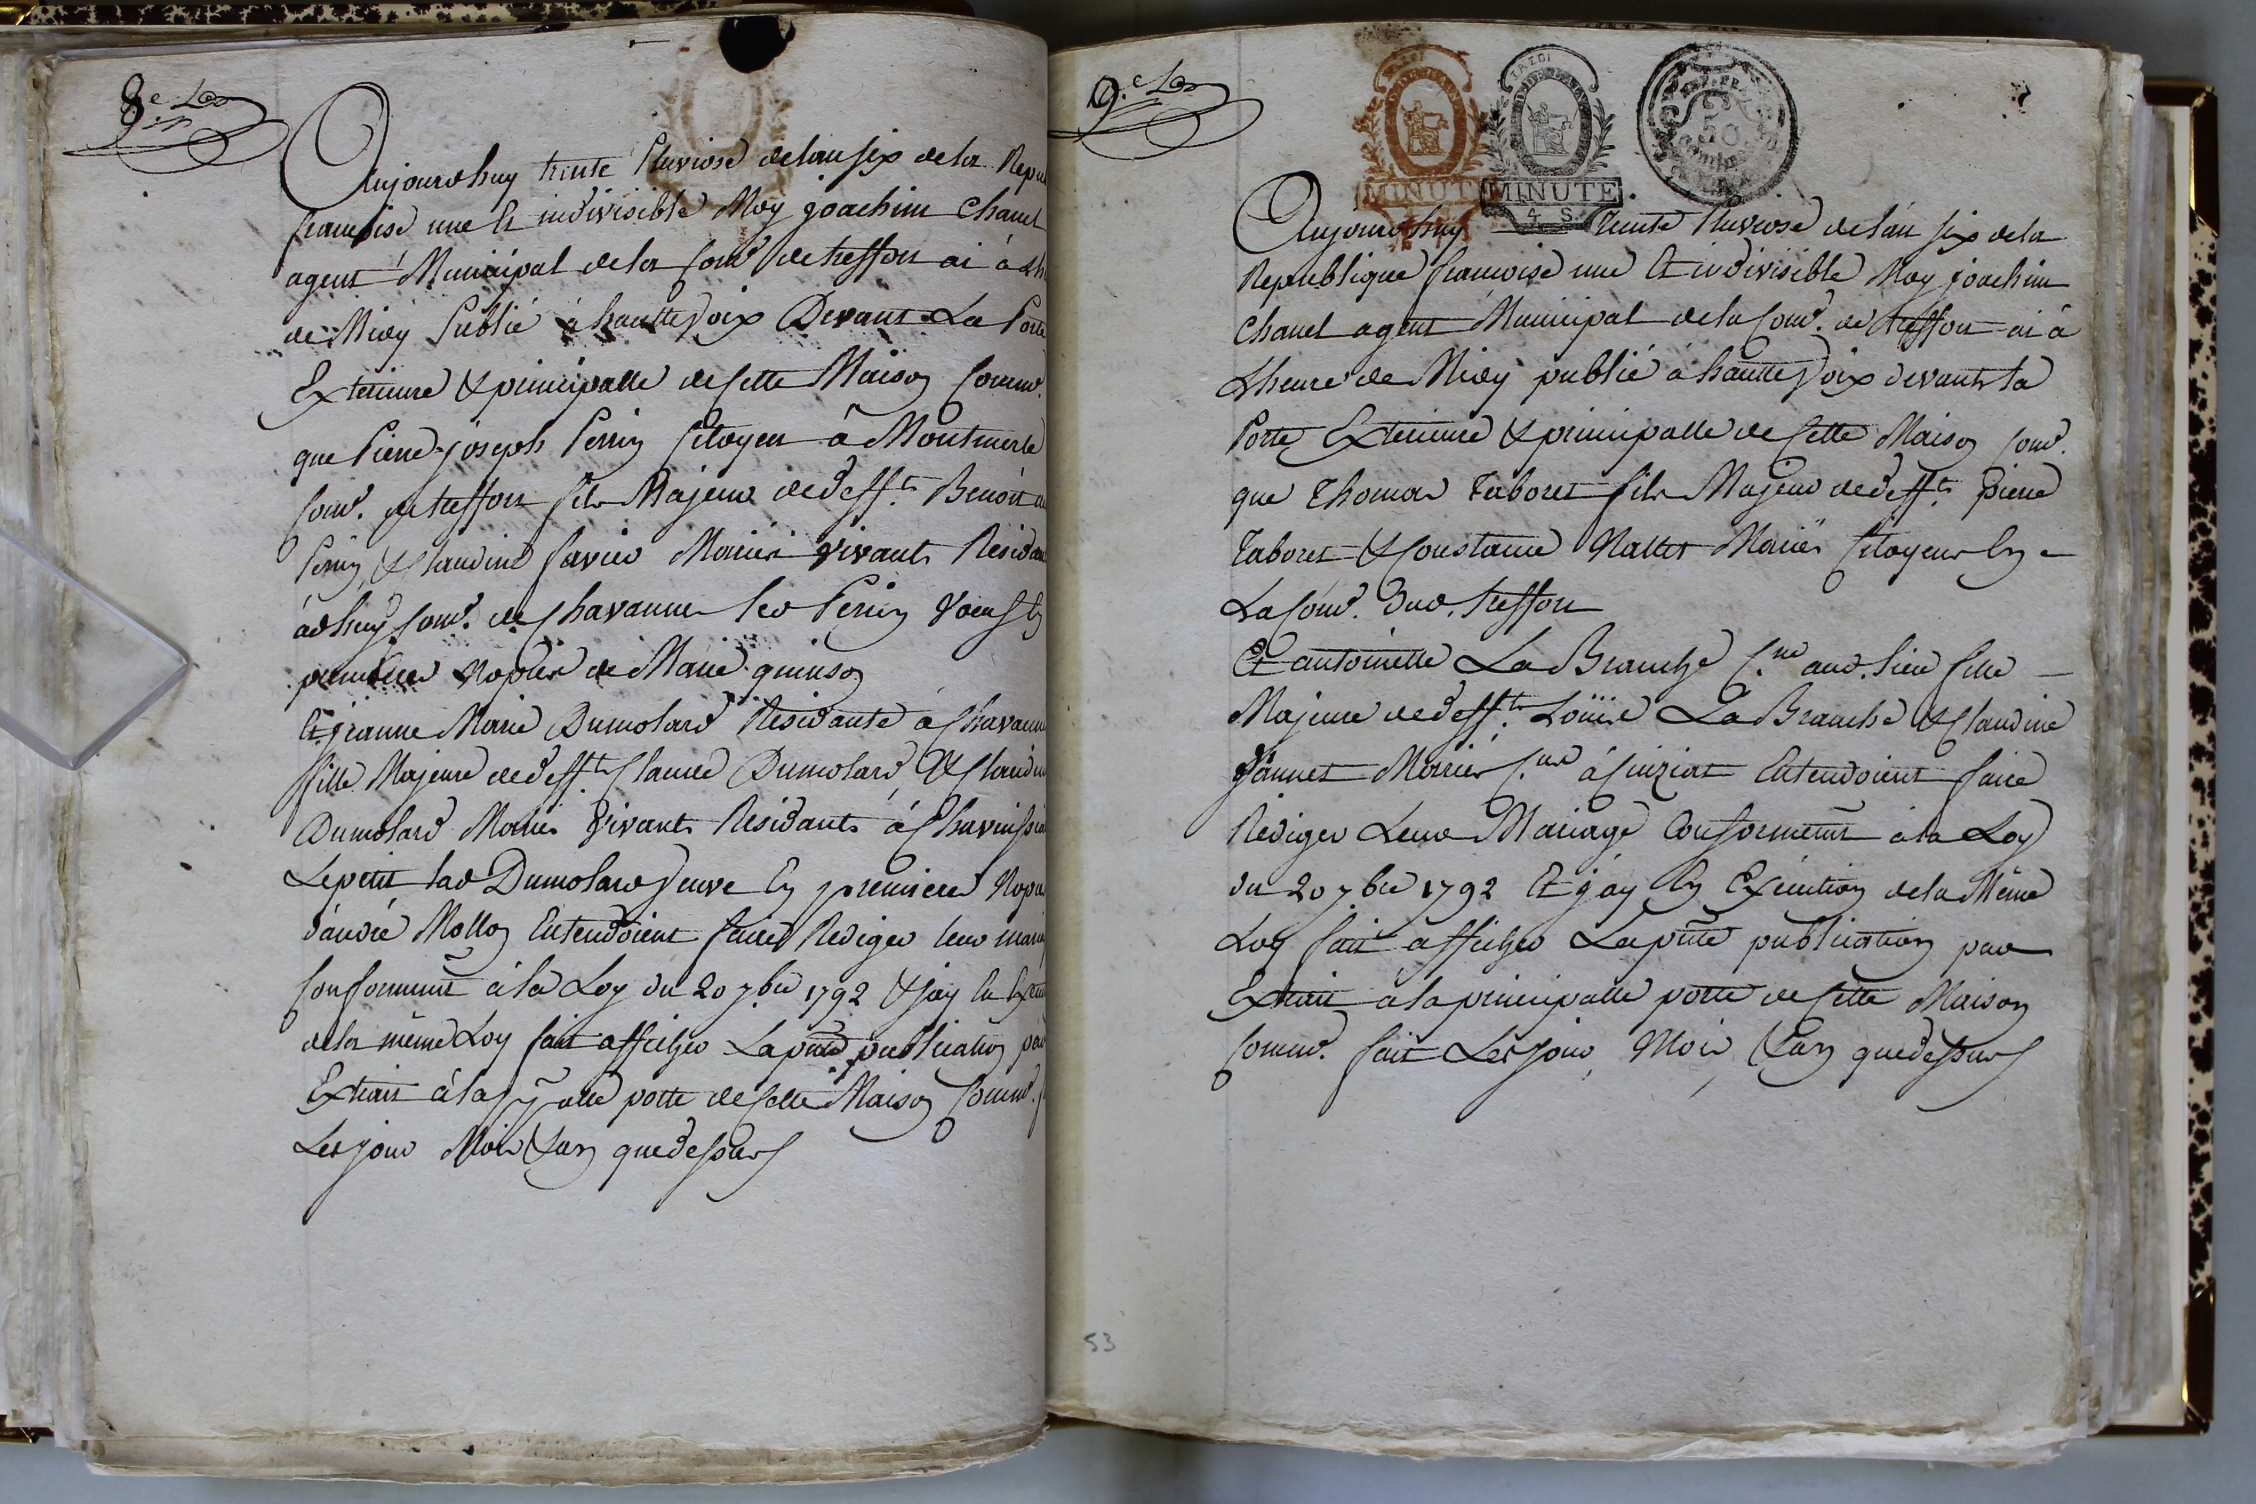 8.e
Aujourdhuy trente Pluviose delan six dela Repu
francoise une Et indivisible Moy joachim Chanel
agent Municipal dela Com.e de treffort ai à Lh
de Midy Publié à hautte Voix Devant La Porte
Exterieure & principalle de Cette Maison Comm.e
que Pierre joseph Perrin Citoyen à Montmerle
Com.e de treffort fils Majeur de deff.ts Benoit
Perrin & Claudine Mariés vivants Residan
com.e de Chavanne led Perrin Veuf En
premiere Nopces de Marie quinson
Et jeanne Marie Dumolard Residante à Chavanne
fille Majeure de deff.ts Claude Dumolard & Claudine
Dumolard Mariés Vivants Residants à
Lepetit lad Dumolard Veuve En premiere Nopce
d'andré Mollon Entendoient faire Rediger leur maria
Conformemt à la Loy du 20 7.bre 1792 & jay En Exe
dela même Loy fait afficher Lapnte publication par
Extrait à la pp.alle porte de Cette Maison Comm.e
Les jour Mois & an que dessus
9.e
MINUTE
MINUTE
4 S
50
Aujourdhuy trente Pluviose delan six dela
Republique francoise une Et indivisible Moy joachim
Chanel agent Municipal dela Com.e de treffort ai à
Lheure de Midy publié à hautte Voix devant la
Porte Exterieure & principalle de Cette Maison Com.e
que Thomas Taboret fils Majeur de deff.ts Pierre
Taboret & Constance Nallet Mariés Citoyens En
La Com.e dud. treffort
Et antoinette La Branche C.ne aud. lieu fille
Majeure de deff.ts Loüis La Branche & Claudine
Jannet Mariés à Cuiziat Entendoient faire
Rediger Leur Mariage Conformemt à la Loy
du 20 7.bre 1792 Et j'ay En Exécution dela Même
Loy fait afficher Lapnte publication par
Extrait à la principalle porte de Cette Maison
Comm.e fait Les jour, Mois, & an que dessus
53